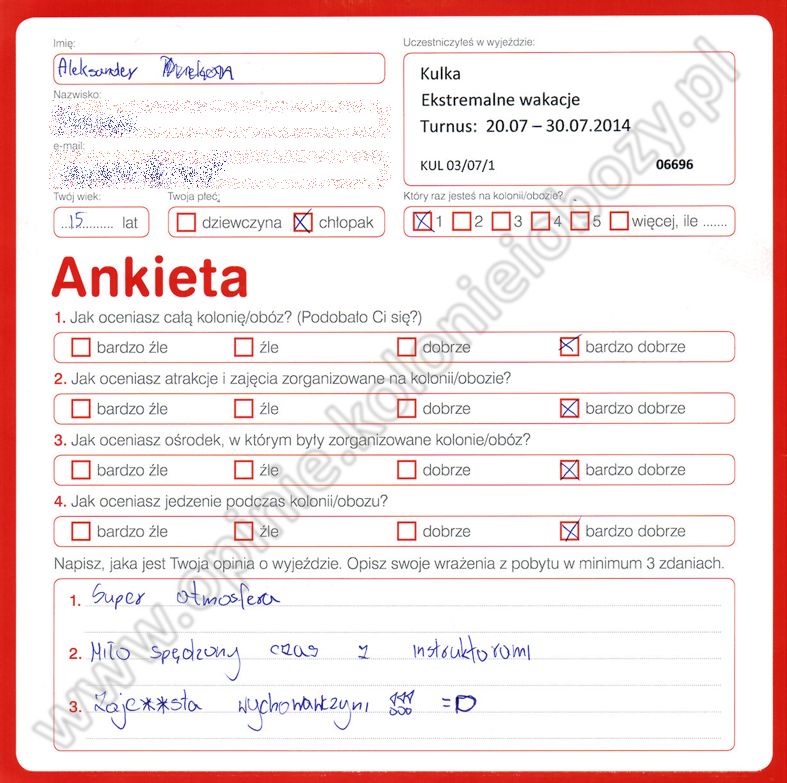 Imię:
Uczestniczyłeś w wyjeździe:
Aleksander
Kulka
Ekstremalne wakacje
Turnus: 20.07 – 30.07.2014
KUL 03/07/1 06696
Nazwisko:
e-mail:
Twój wiek:
Twoja płeć:
Który raz jesteś na kolonii/obozie?
15 lat
dziewczyna chłopak
1 2 3 4 5 więcej, ile .......
Ankieta
1. Jak oceniasz całą kolonię/obóz? (Podobało Ci się?)
bardzo źle źle dobrze bardzo dobrze
2. Jak oceniasz atrakcje i zajęcia zorganizowane na kolonii/obozie?
bardzo źle źle dobrze bardzo dobrze
3. Jak oceniasz ośrodek, w którym były zorganizowane kolonie/obóz?
bardzo źle źle dobrze bardzo dobrze
4. Jak oceniasz jedzenie podczas kolonii/obozu?
bardzo źle źle dobrze bardzo dobrze
Napisz, jaka jest Twoja opinia o wyjeździe. Opisz swoje wrażenia z pobytu w minimum 3 zdaniach.
1. Super atmosfera
2. Miło spędzony czas z instruktorami
3. Zaje**sta wychowawczyni !!! =D
www.opinie.kolonieiobozy.pl